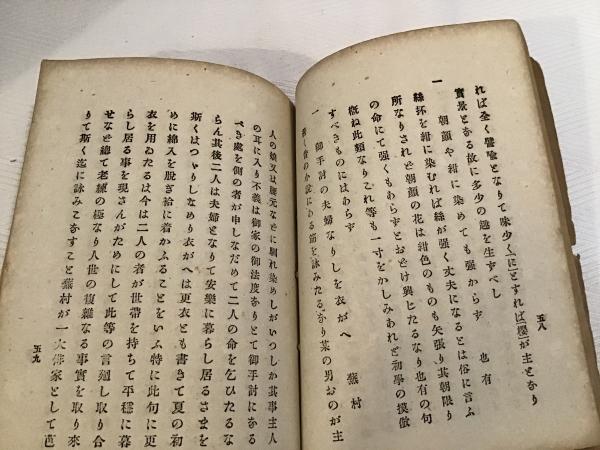 五八
れば全く譬喩となりて味少く「に」とすれば「櫻」が主となり
實景となる故に多少の趣を生ずべし
一 朝顔や紺に染めても強からず 也有
絲抔を紺に染むれば絲が強く丈夫になるとは俗に言ふ
所なりされど朝顔の花は紺色のものも矢張り其朝限り
の命にて強くもあらずとおどけ興じたるなり也有の句
概ね此類なりこれ等も一寸をかしみあれど初學の摸倣
すべきものにはあらず
一 御手討の夫婦なりしを衣がへ 蕪村
昔の小説にある筋を詠みたるなり某の男おのが主
人の娘又は腰元などに馴れ染めしがいつしか其事主人
の耳に入り不義は御家の御法度なりとて御手討になる
べき處を側の者が申しなだめて二人の命を乞ひたるな
らん其後二人は夫婦となりて安樂に暮らし居るさまを
斯くはつゞりしなめり衣がへは更衣とも書きて夏の初
めに綿入を脱ぎ袷に着かふることをいふ特に此句に更
衣を用ゐたるは今は二人の者が世帶を持ちて平穩に暮
らし居る事を現さんがためにして此等の言廻し取り合
せなど總て老練の極なり人世の複雜なる事實を取り來
りて斯く迄に詠みこなすこと蕪村が一大俳家として芭
五九